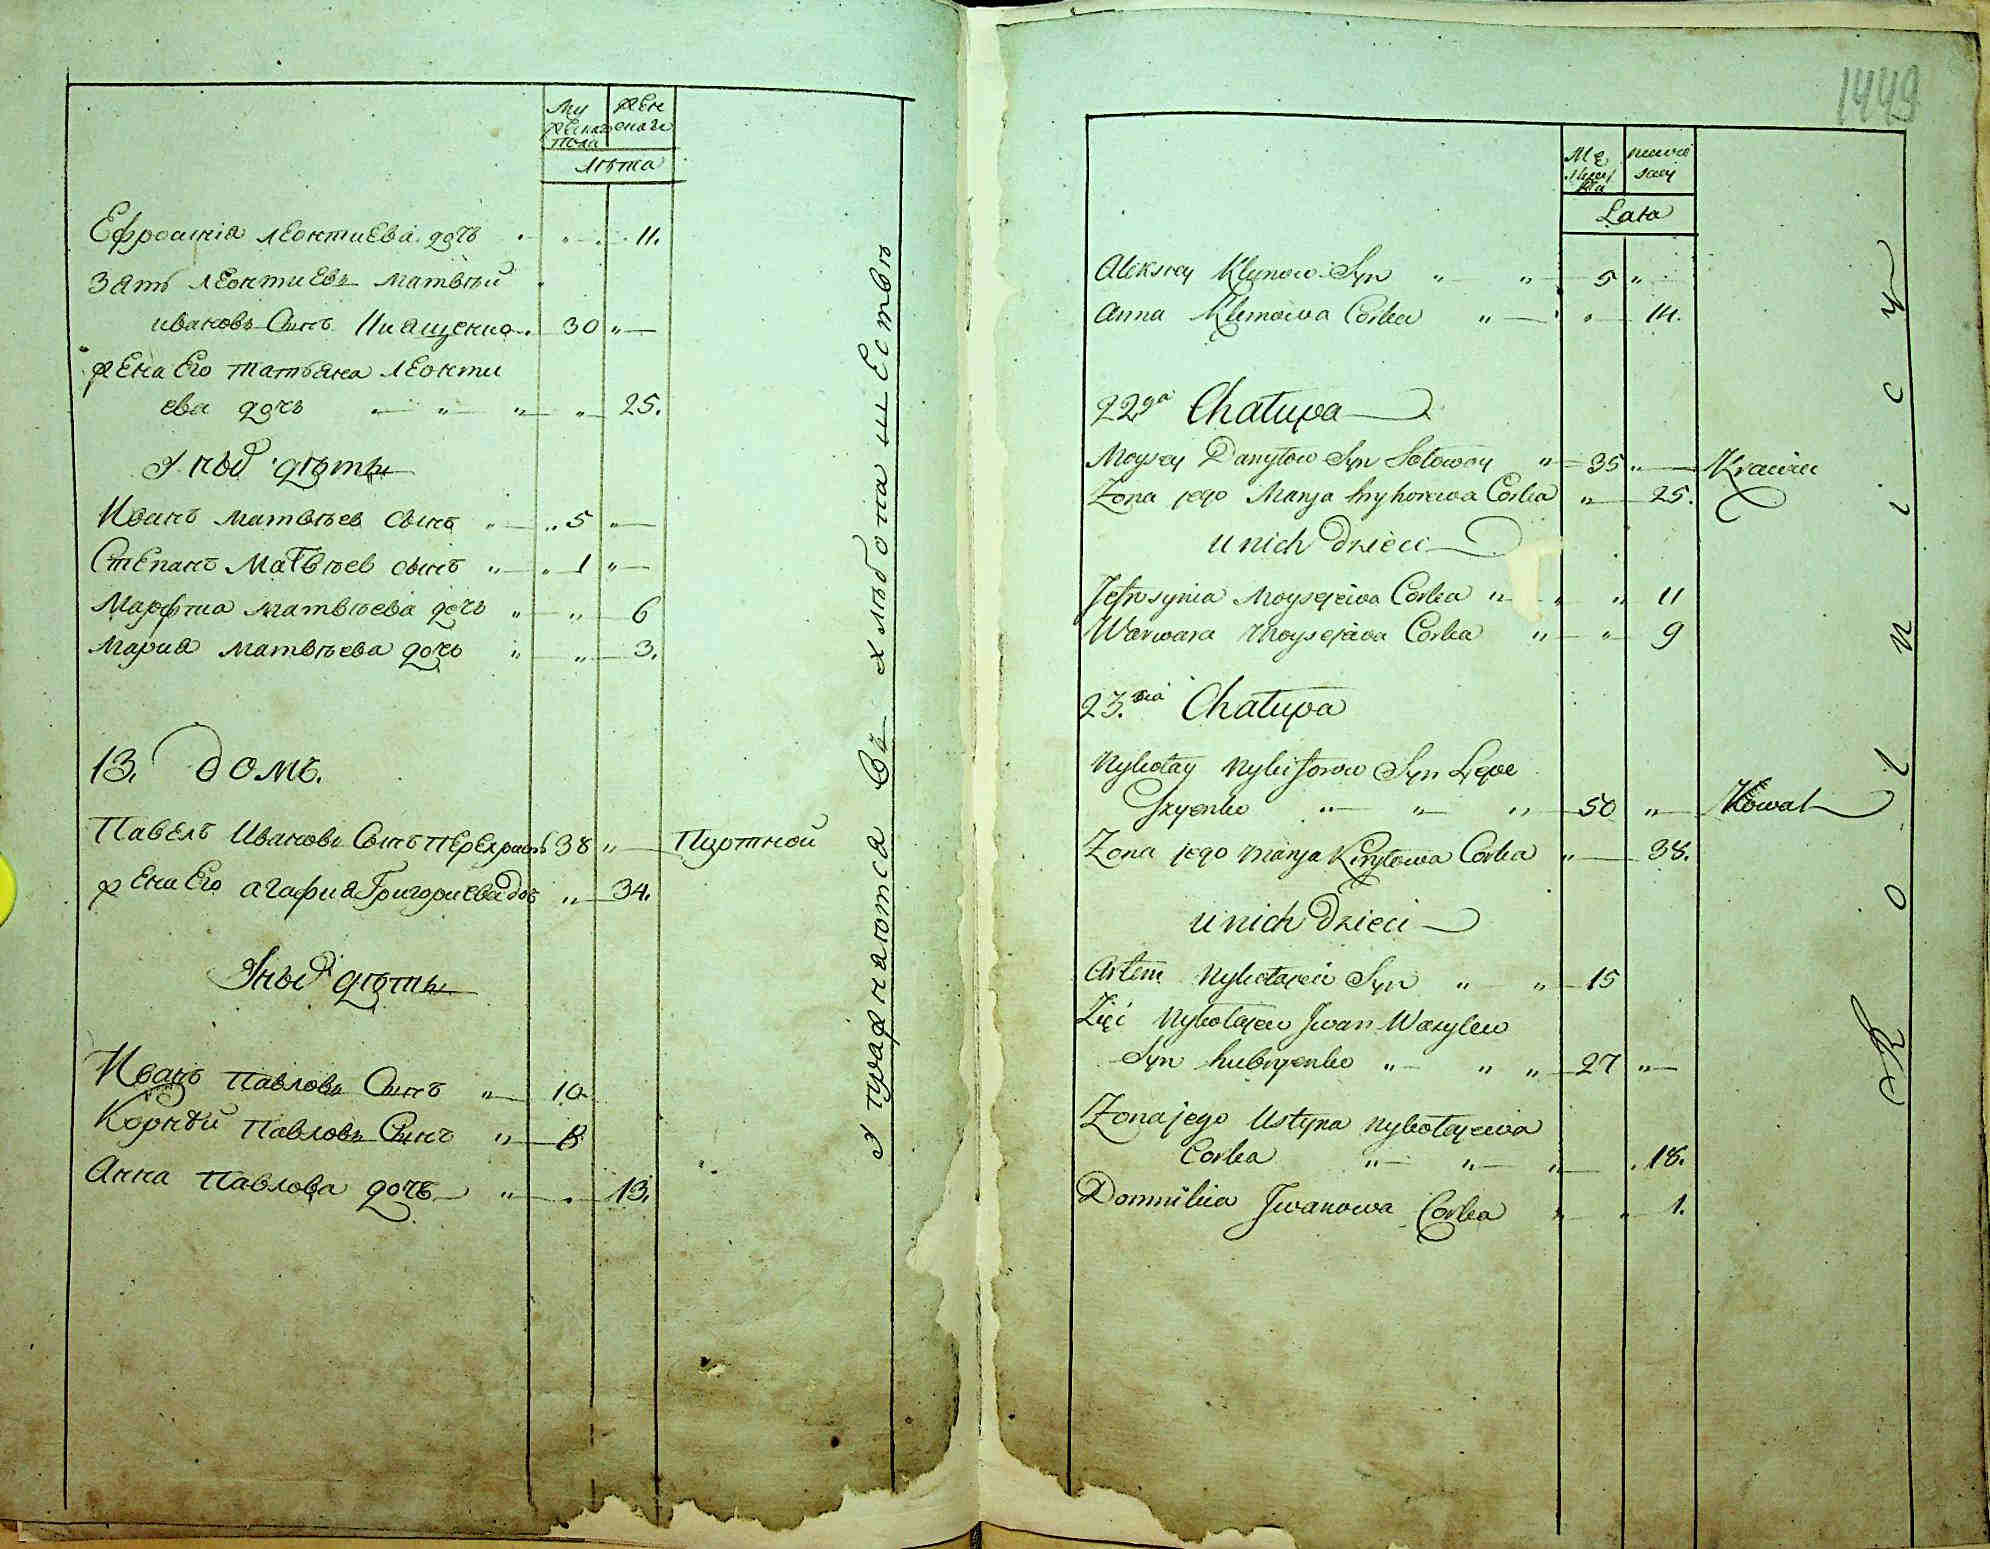 Му
жеска
пола
жен
скаго
лѣта
Ефросинія Леонтиева дочь " " 11.
Зять Леонтиевъ Матвѣй
ивановъ Сынъ 30 "
жена Его татьяна Леонти
ева дочь " " " " 25.
У нѣхъ дѣти
Иванъ Матвѣев сынъ " " 5 "
Степанъ Матвѣев сынъ " " 1 "
Марфиа Матвѣева дочь " " 6
Мариа Матвѣева дочь " " 3.
13. домъ.
Павелъ Ивановъ Сынъ 38 " Портной
жена Его агафиа Григориева доч " 34.
У нѣхъ дѣти
Иванъ Павловъ Сынъ " 10
Корнѣй Павловъ Сынъ " 8
Анна Павлова дочь " 13.
упражнаютса въ хлѣбопашествѣ
1449
Mę
zkie
Lata
Aleksiey Klymow Syn " " 5 "
Anna Klimowa Corka " " 14.
22ga Chałupa
Moysey Danyłow Syn Sołowoy " 35 " Krawiec
Zona jego Marya hryhorewa Corka " 25.
u nich Dzieci
Jefrosynia Moysejewa Corka " " " 11
Warwara Moysejewa Corka " " 9
23.cia Chałupa
Nykołay Nykiforow Syn Łepe
Szyenko " " " 50 " Kowal
Zona jego Marya Kiryłowa Corka " 38.
u nich Dzieci
Artem Nykołajew Syn " " 15
Zięć Nykołajew Jwan Wasylew
Syn hubryenko " " " 27 "
Zona jego Ustyna Nykołajewa
Corka " " " 18.
Domnikia Jwanowa Corka " " 1.
Rolnicy